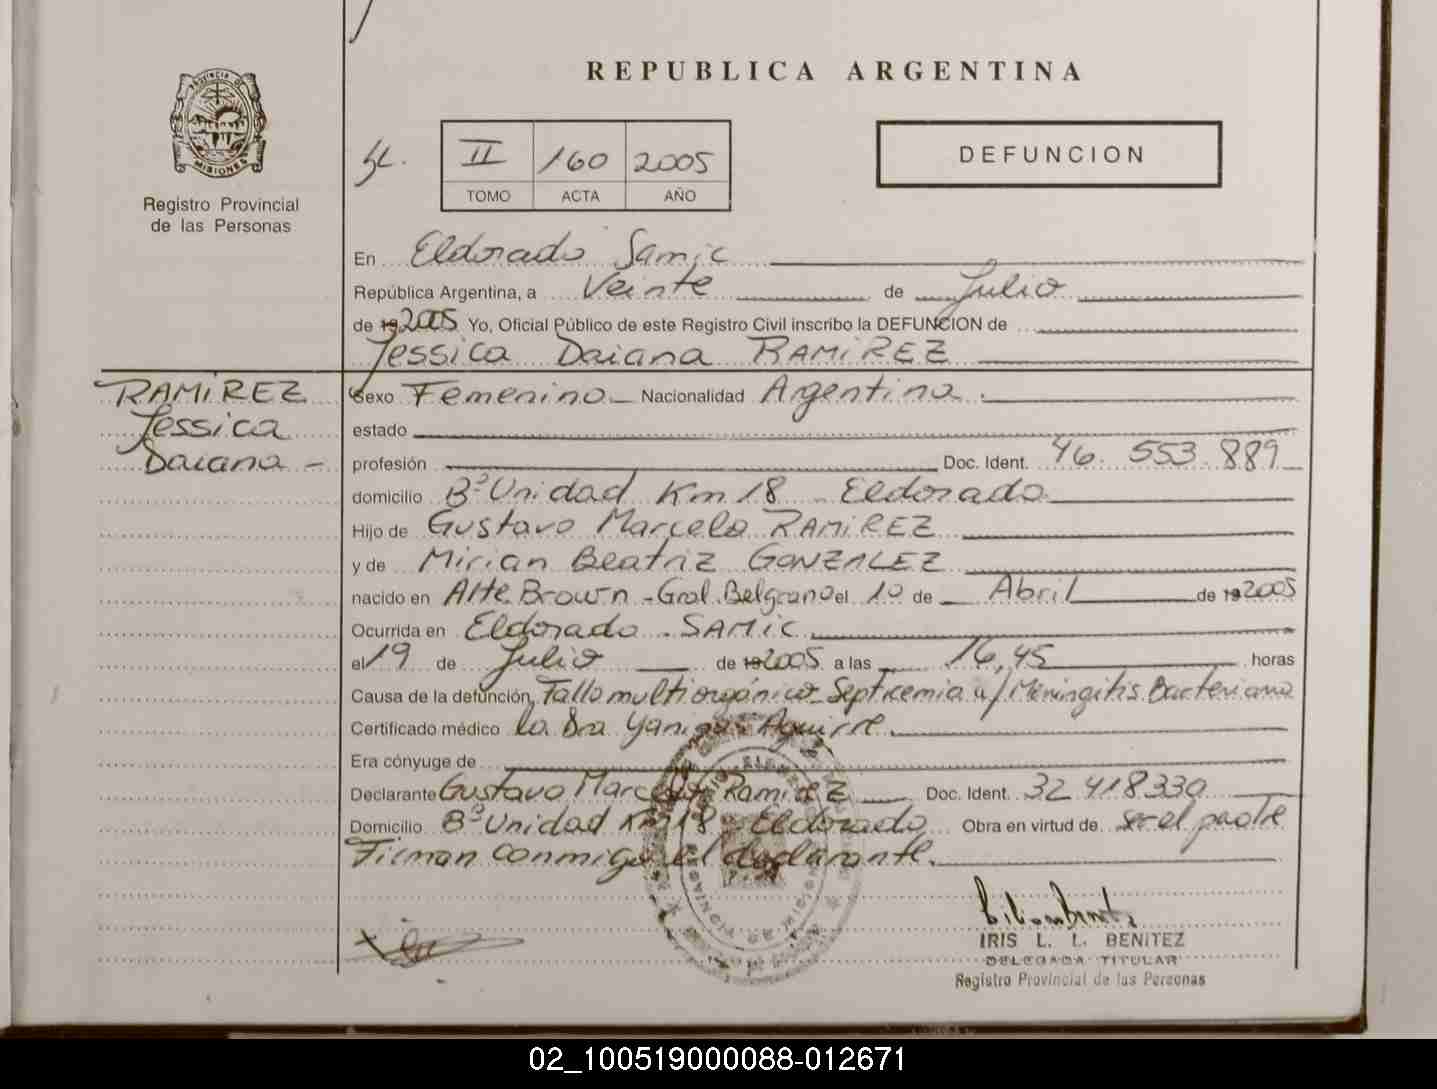 REPUBLICA ARGENTINA
PROVINCIA DE MISIONES
Registro Provincial
de las Personas
II 160 2005
TOMO ACTA AÑO
DEFUNCION
En Eldorado Samic
República Argentina, a Veinte de Julio
de 19 2005 Yo, Oficial Público de este Registro Civil inscribo la DEFUNCION de
Jessica Daiana RAMIREZ
RAMIREZ
Jessica
Daiana -
Sexo Femenino - Nacionalidad Argentina.
estado
profesión Doc. Ident. 46.553.889
domicilio Bº Unidad Km 18 - Eldorado
Hijo de Gustavo Marcelo RAMIREZ
y de Mirian Beatriz GONZALEZ
nacido en Alte. Brown - Gral. Belgrano el 10 de Abril de 19 2005
Ocurrida en Eldorado - SAMIC
el 19 de Julio de 19 2005 a las 16,45 horas
Causa de la defunción Fallo multiorgánico - Septicemia y/ Meningitis Bacteriana
Certificado médico la Dra Yanina Aguirre
Era cónyuge de
Declarante Gustavo Marcelo Ramirez Doc. Ident. 32 418330
Domicilio Bº Unidad Km 18 - Eldorado Obra en virtud de ser el padre
Firman conmigo el declarante.
IRIS L. L. BENITEZ
DELEGADA TITULAR
Registro Provincial de las Personas
02_100519000088-012671